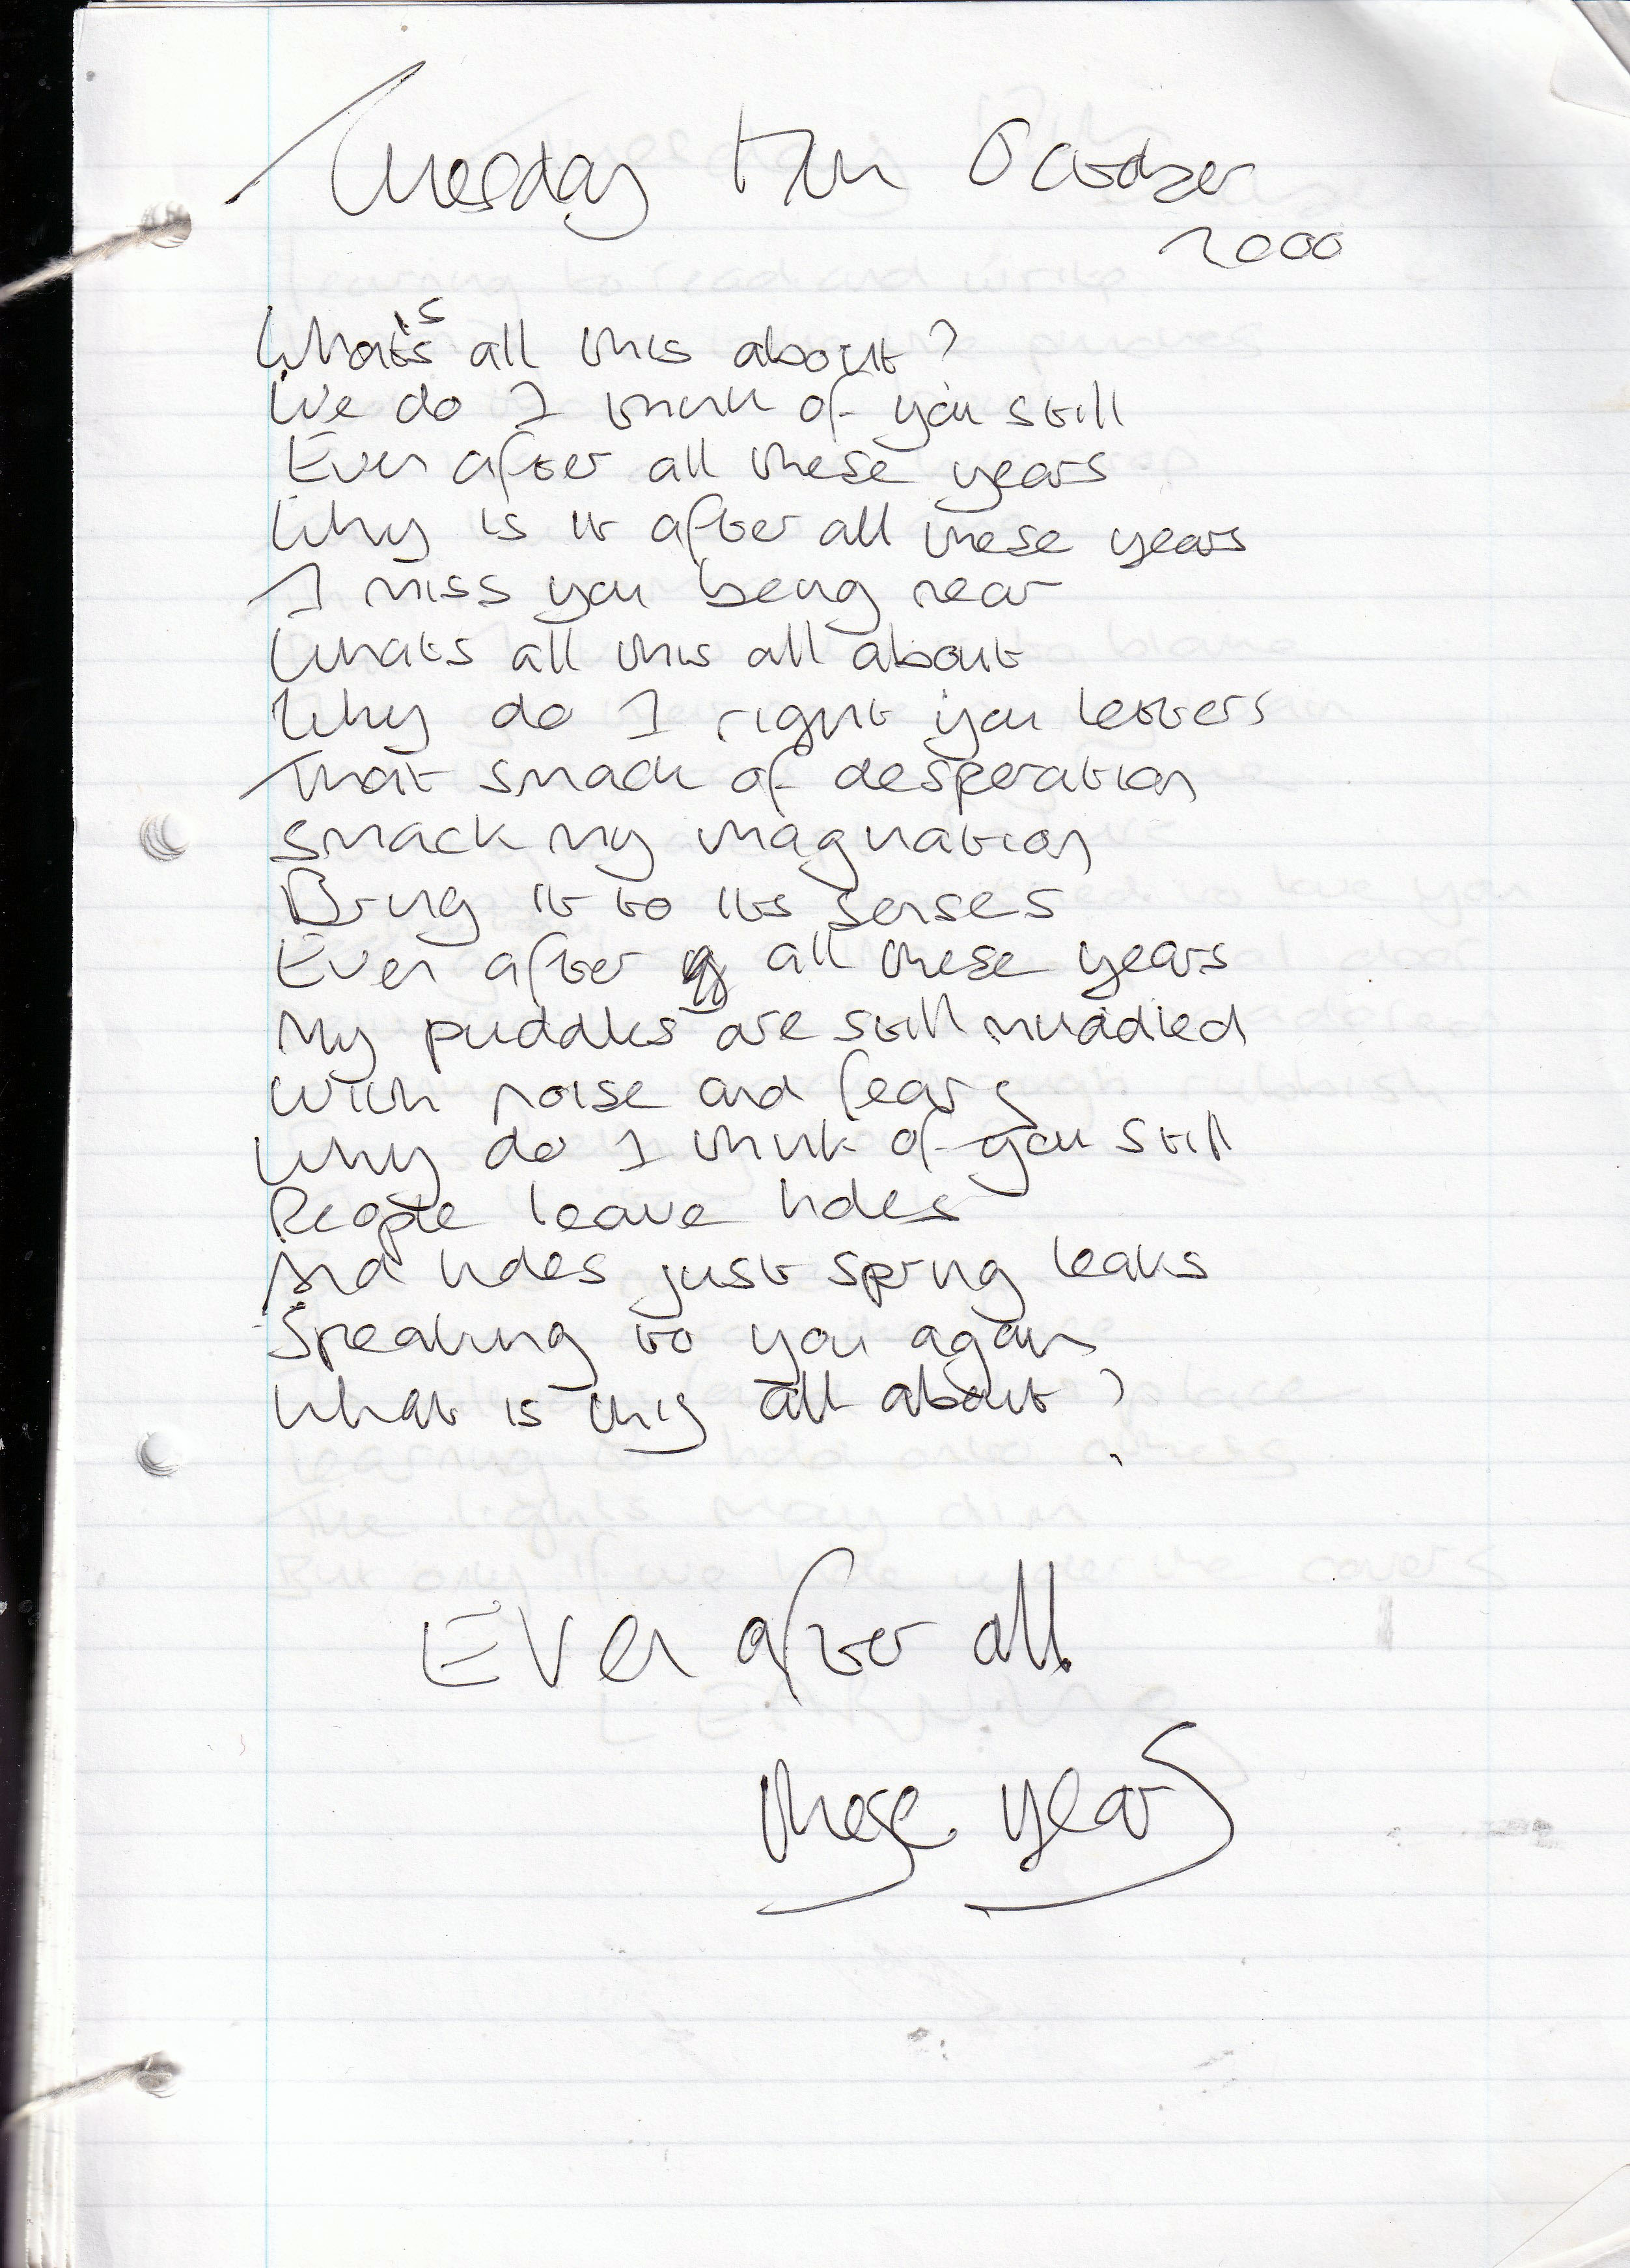 Tuesday 17th October
2000
What's is all this about?
We do I think of you still
Even after all these years
Why is it after all these years
I miss you being near
Whats all this all about
Why do I right you letters
That smack of desperation
Smack my imagination
Bring it to its senses
Even after all these years
My puddles are still muddied
With noise and fear
Why do I think of you still
People leave holes
And holes just spring leaks
Speaking to you again
What is this all about?
Even after all
these years